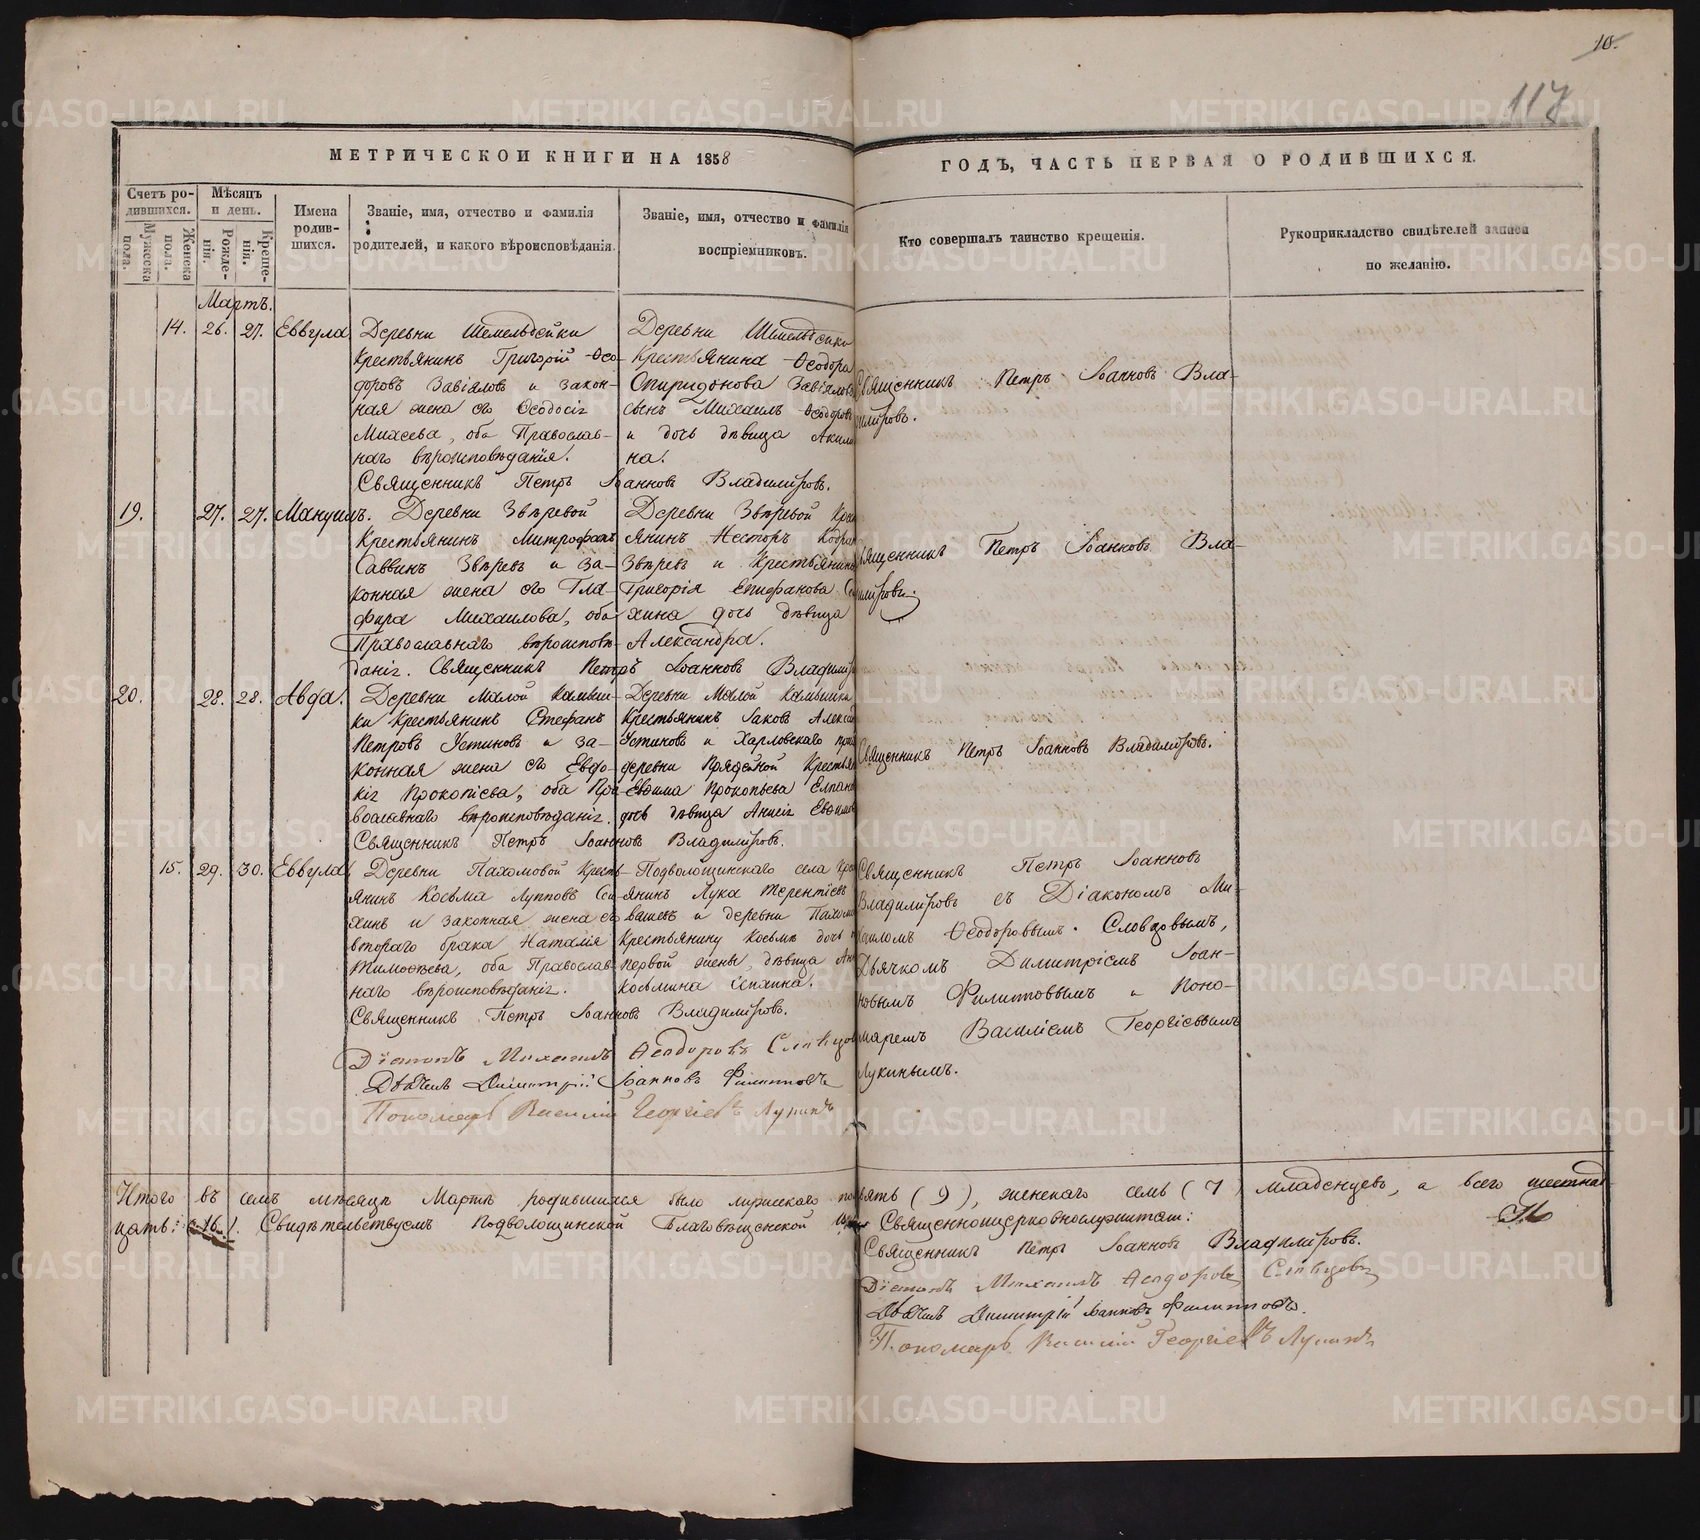 10.
117
МЕТРИЧЕСКОЙ КНИГИ НА 1858
ГОДЪ, ЧАСТЬ ПЕРВАЯ О РОДИВШИХСЯ.
Счетъ ро-
дившихся.
Мужеска
пола.
Женска
пола.
Мѣсяцъ
и день.
Рожде-
нія.
Креще-
нія.
Имена
родив-
шихся.
Званіе, имя, отчество и фамилія
родителей, и какого вѣроисповѣданія.
Званіе, имя, отчество и фамилія
воспріемниковъ.
Кто совершалъ таинство крещенія.
Рукоприкладство свидѣтелей записи
по желанію.
Мартъ.
14. 26. 27. Еввула
Деревни Шемельдейки
крестьянинъ Григорій Ѳео-
доровъ Завіяловъ и закон-
ная жена его Ѳеодосія
Михеева, оба Православ-
наго вѣроисповѣданія.
Деревни Шемельдейки
Крестьянина Ѳеодора
Спиридонова Завіялова
сынъ Михаилъ Ѳеодоровъ
и дочь дѣвица Акили-
на.
Священникъ Петръ Іоанновъ Владиміровъ.
Священникъ Петръ Іоанновъ Вла-
диміровъ.
19. 27. 27. Мануилъ.
Деревни Звѣревой
Крестьянинъ Митрофанъ
Саввинъ Звѣревъ и за-
конная жена его Гла-
фира Михаилова, оба
Православнаго вѣроисповѣ-
данія. Священникъ Петръ Іоанновъ Владиміровъ
Деревни Звѣревой Крест
янинъ Несторъ
Звѣревъ и Крестьянина
Григорія Епифанова
хина дочь дѣвица
Александра.
Священникъ Петръ Іоанновъ Вла-
диміровъ.
20. 28. 28. Авда.
Деревни Малой Камыш-
ки Крестьянинъ Стефанъ
Петровъ Устиновъ и за-
конная жена его Евдо-
кія Прокопіева, оба Пра-
вославнаго вѣроисповѣданія.
Деревни Малой Камышки
Крестьянинъ Іаковъ Алексі
Устиновъ и Харловскаго прих
деревни Прядеиной Крестьян
Евѳима Прокопьева
дочь дѣвица Анисія Евѳимова
Священникъ Петръ Іоанновъ Владиміровъ.
Священникъ Петръ Іоанновъ Владиміровъ.
15. 29. 30. Еввула
Деревни Пахомовой Кресть-
янинъ Косьма Лупповъ
хинъ и законная жена его
втораго брака Наталія
Тимоѳеева, оба Православ-
наго вѣроисповѣданія.
Подволошинскаго села Крест
янинъ Лука Терентіевъ
и деревни Пахомо
Крестьянину Косьмѣ дочь
первой жены, дѣвица
Косьмина
Священникъ Петръ Іоанновъ Владиміровъ.
Діаконъ Михаилъ Ѳеодоровъ Словцовъ
Дьячекъ Димитрій Іоанновъ Филипповъ
Пономарь Василій Георгіевъ Лукинъ
Священникъ Петръ Іоанновъ
Владиміровъ съ Діакономъ Ми-
хаиломъ Ѳеодоровымъ Словцовымъ,
Дьячкомъ Димитріемъ Іоан-
новымъ Филипповымъ и Поно-
маремъ Василіемъ Георгіевымъ
Лукинымъ.
Итого въ семъ мѣсяцѣ Мартѣ родившихся было мужескаго пола девять (9), женскаго семь (7) младенцевъ, а всего шестнад-
цать: 16. Свидѣтельствуемъ Подволошинской Благовѣщенской церкви Священноцерковнослужители:
Священникъ Петръ Іоанновъ Владиміровъ.
Діаконъ Михаилъ Ѳеодоровъ Словцовъ
Дьячекъ Димитрій Іоанновъ Филипповъ.
Пономарь Василій Георгіевъ Лукинъ
METRIKI.GASO-URAL.RU